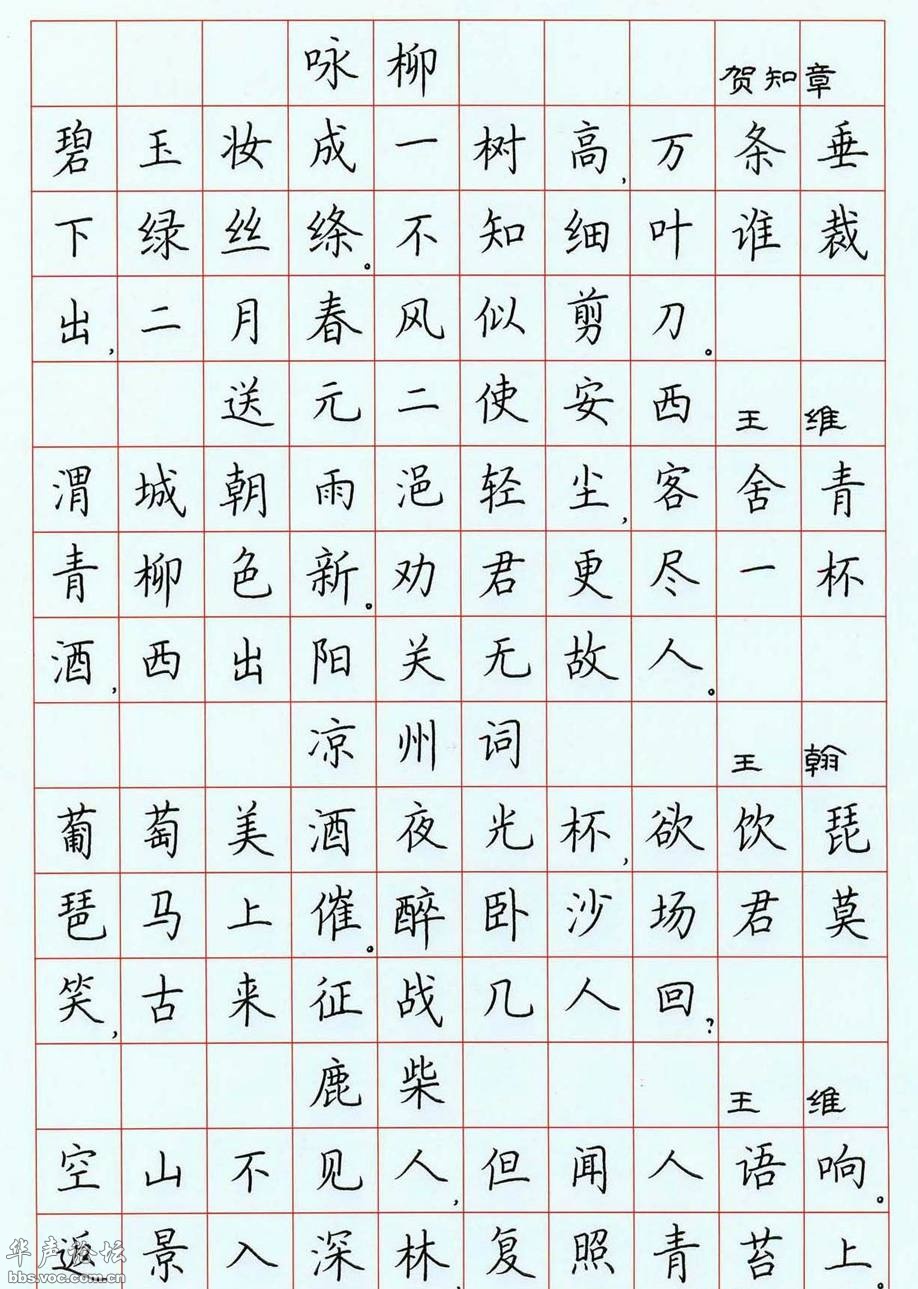 咏柳 贺知章
碧玉妆成一树高,万条垂
下绿丝绦。不知细叶谁裁
出,二月春风似剪刀。
送元二使安西 王维
渭城朝雨浥轻尘,客舍青
青柳色新。劝君更尽一杯
酒,西出阳关无故人。
凉州词 王翰
葡萄美酒夜光杯,欲饮琵
琶马上催。醉卧沙场君莫
笑,古来征战几人回?
鹿柴 王维
空山不见人,但闻人语响。
返景入深林,复照青苔上。
华声论坛
bbs.voc.com.cn